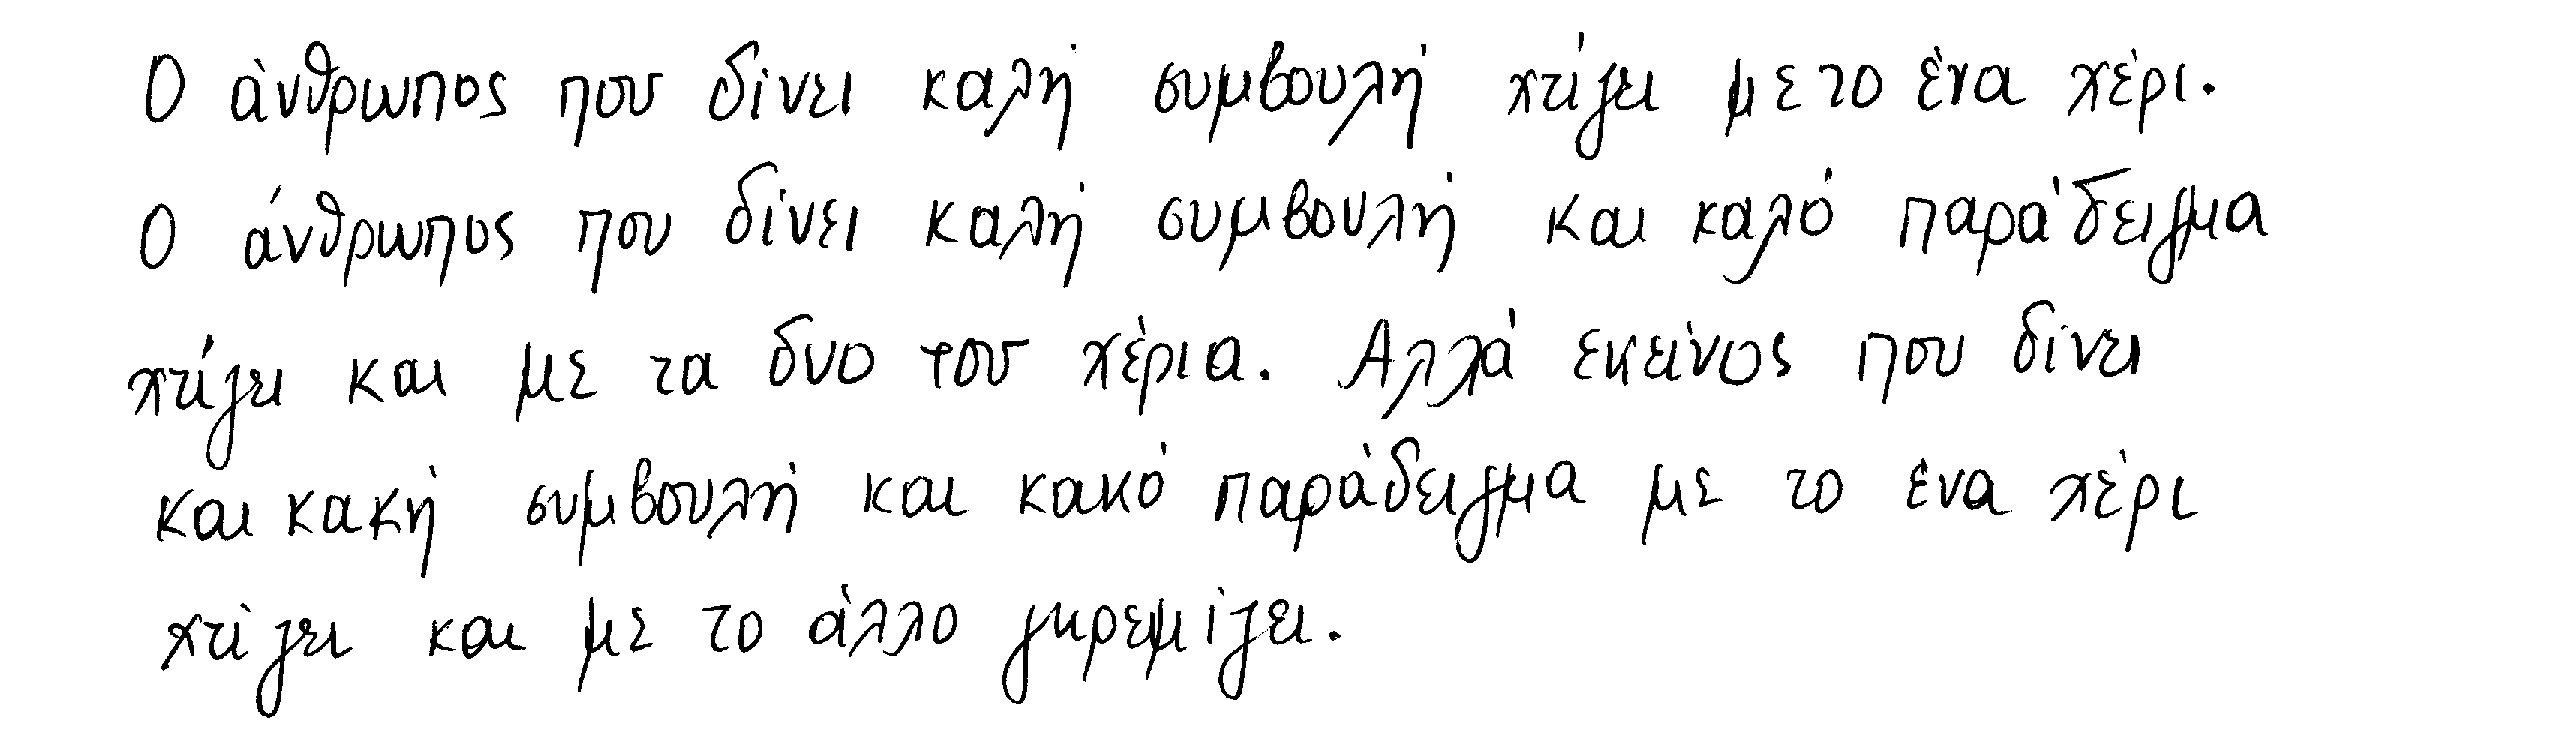 Ο άνθρωπος που δίνει καλή συμβουλή χτίζει με το ένα χέρι.
Ο άνθρωπος που δίνει καλή συμβουλή και καλό παράδειγμα
χτίζει και με τα δυο του χέρια. Αλλά εκείνος που δίνει
και κακή συμβουλή και κακό παράδειγμα με το ένα χέρι
χτίζει και με το άλλο γκρεμίζει.